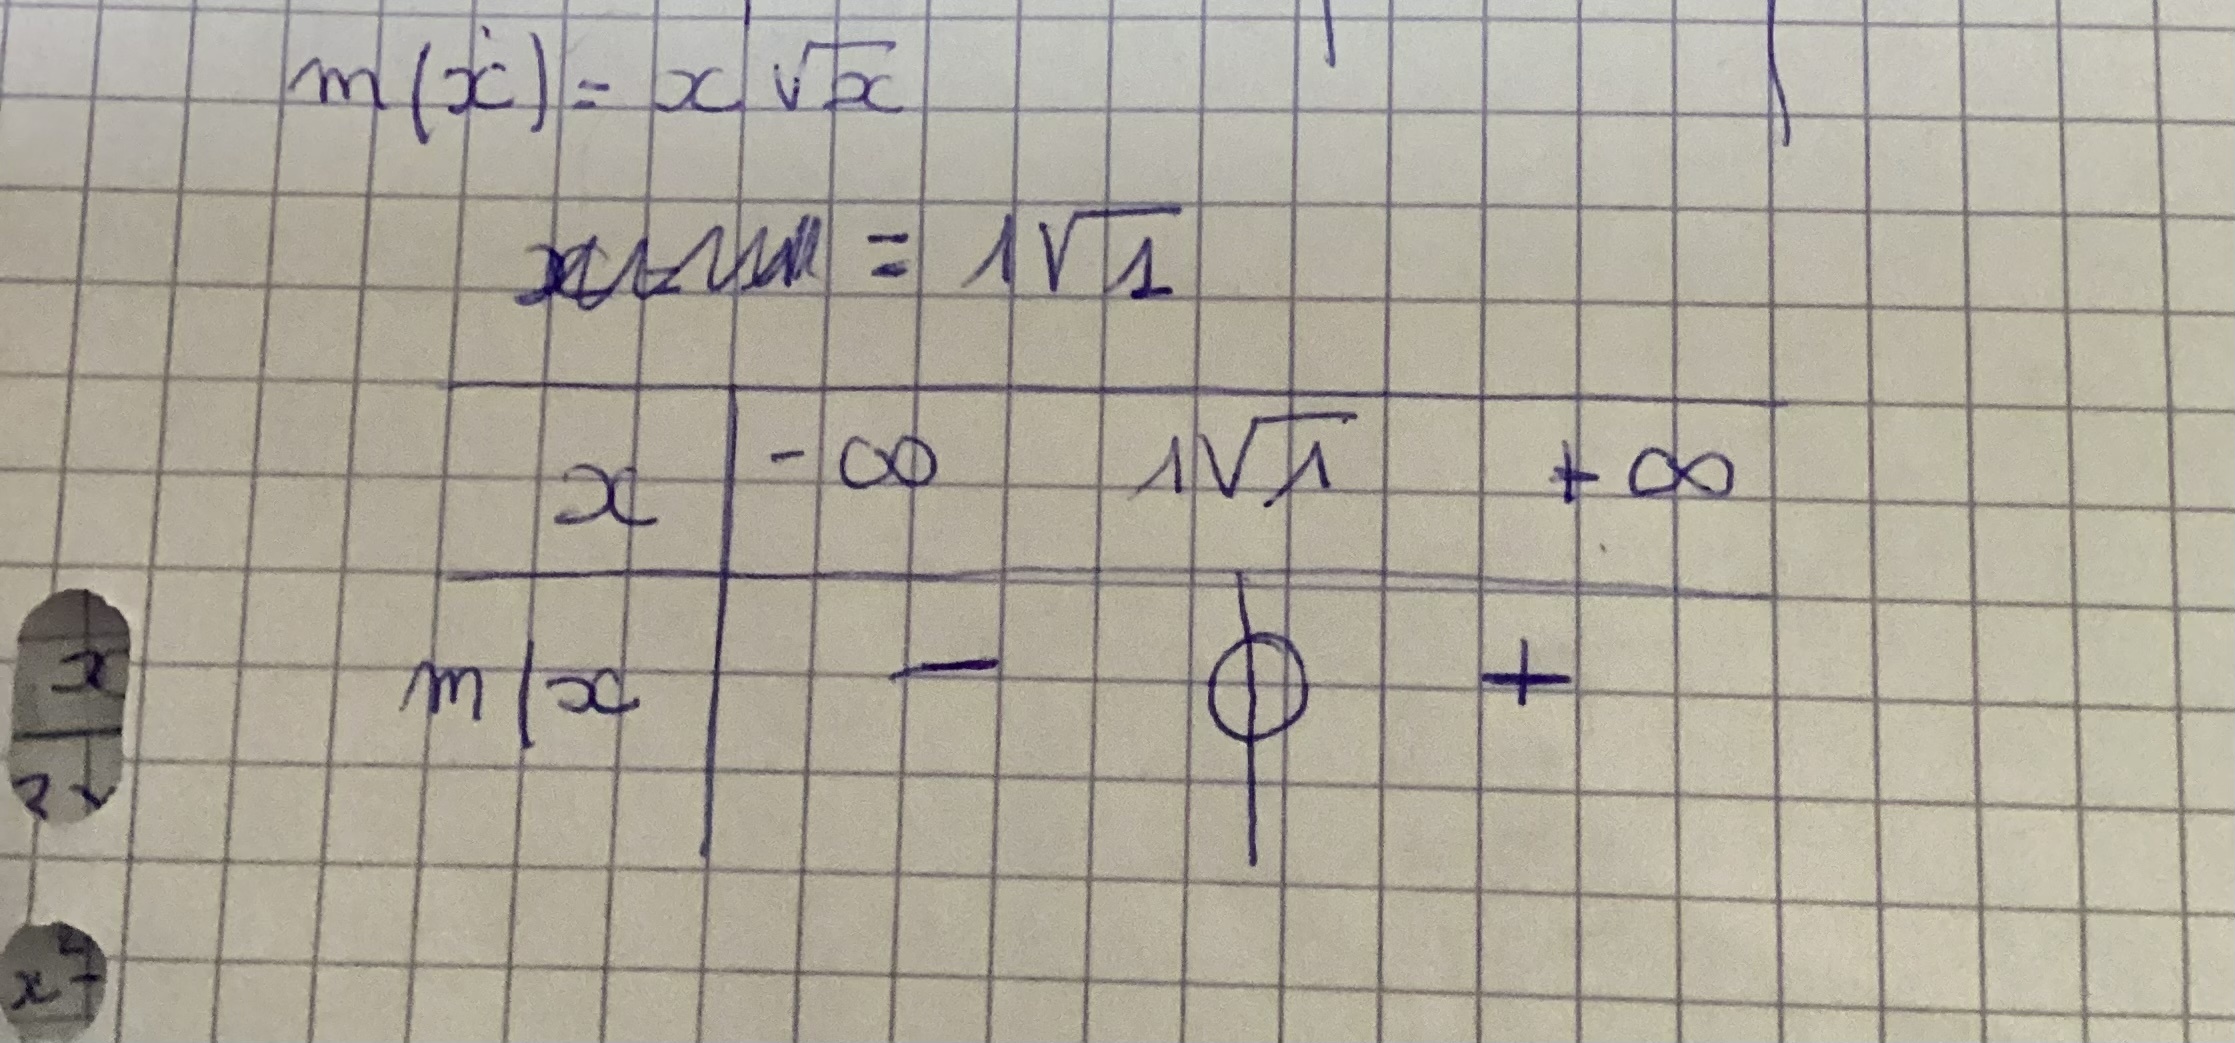 m(x) = x √x
= 1√1
x -∞ 1√1 + ∞
m(x - 0 +
x
x